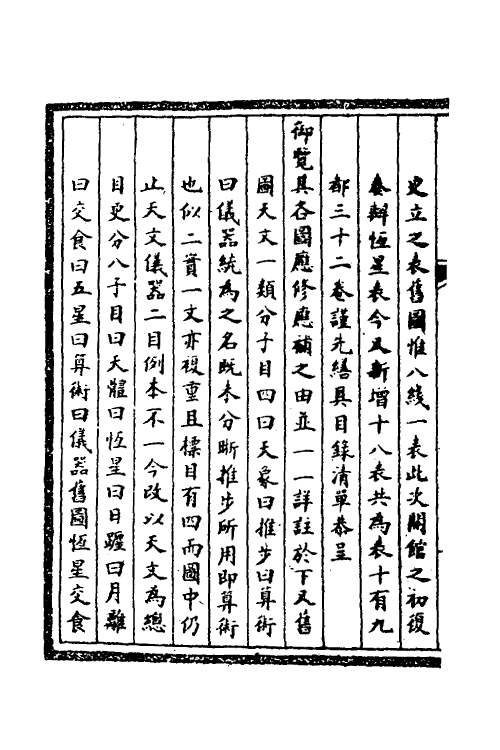 史立之表舊圖惟八线一表此次開館之初復
奏辦恆星表今又新增十八表共為表十有九
都三十二卷謹先繕具目錄清單恭呈
御覽其各圖應修應補之由並一一詳註於下又舊
圖天文一類分子目四曰天象曰推步曰算術
曰儀器統為之名既未分晰推步所用即算術
也似二實一文亦複重且標目有四而圖中仍
止天文儀器二目例本不一今改以天文為總
目更分八子目曰天體曰恆星曰日躔曰月離
曰交食曰五星曰算術曰儀器舊圖恆星交食